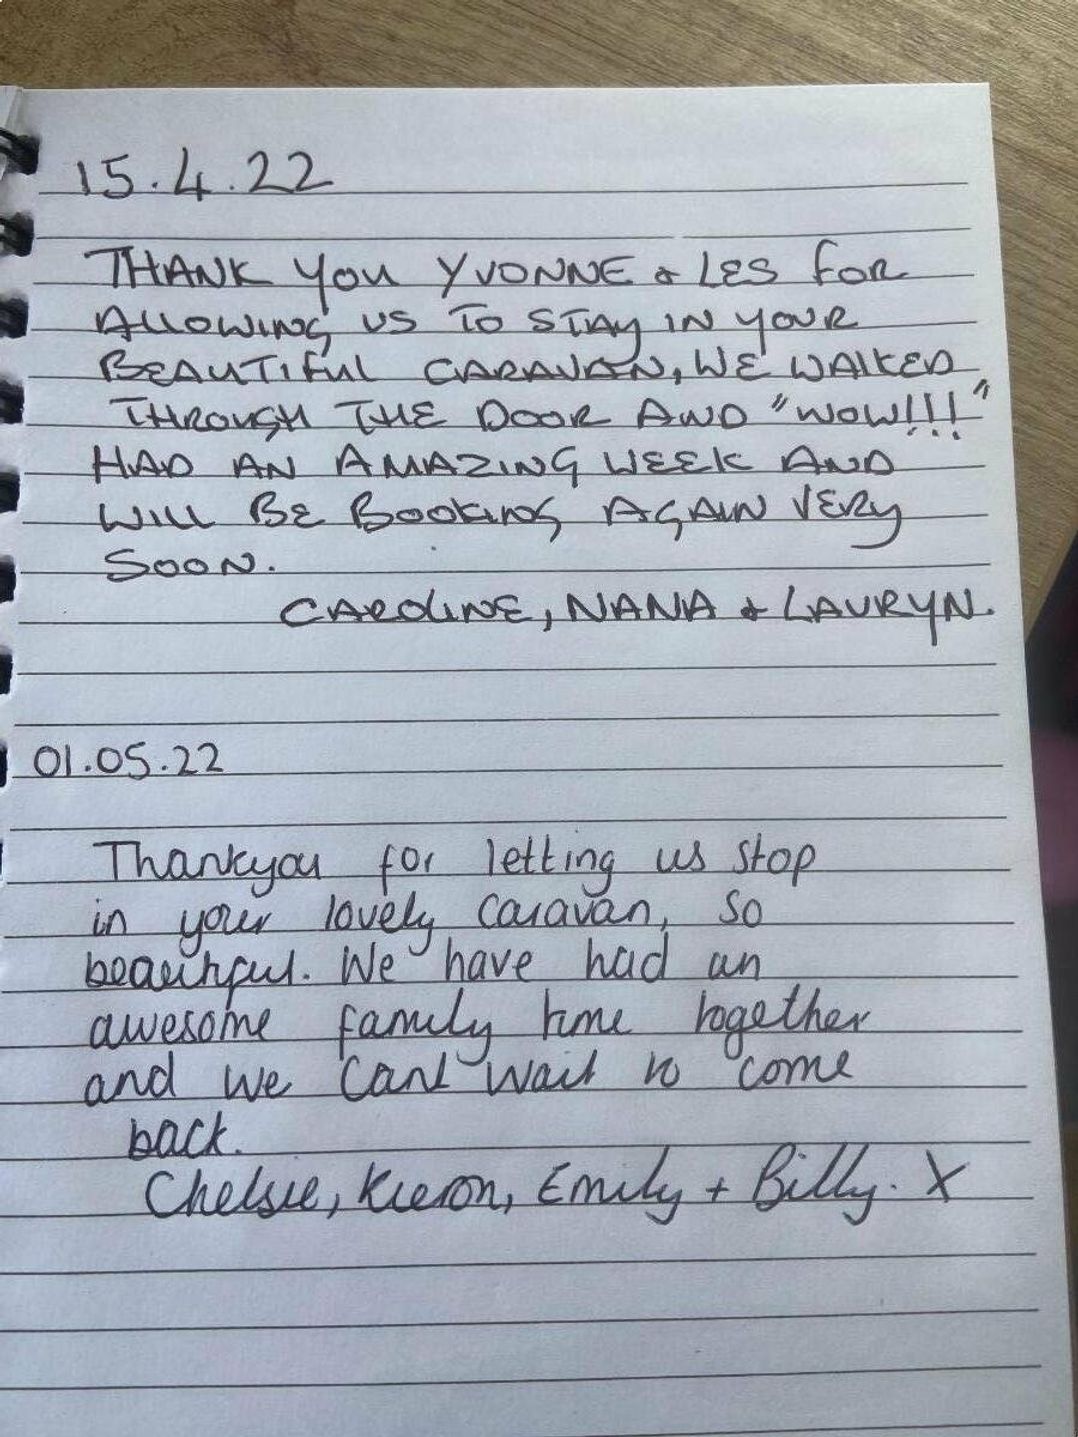 15.4.22
THANK YOU YVONNE & LES FOR
ALLOWING US TO STAY IN YOUR
BEAUTIFUL CARAVAN, WE WALKED
THROUGH THE DOOR AND "WOW!!!"
HAD AN AMAZING WEEK AND
WILL BE BOOKING AGAIN VERY
SOON.
CAROLINE, NANA & LAURYN.
01.05.22
Thankyou for letting us stop
in your lovely caravan, so
beautiful. We have had an
awesome family time together
and we cant wait to come
back.
Chelsie, Kieron, Emily + Billy. X